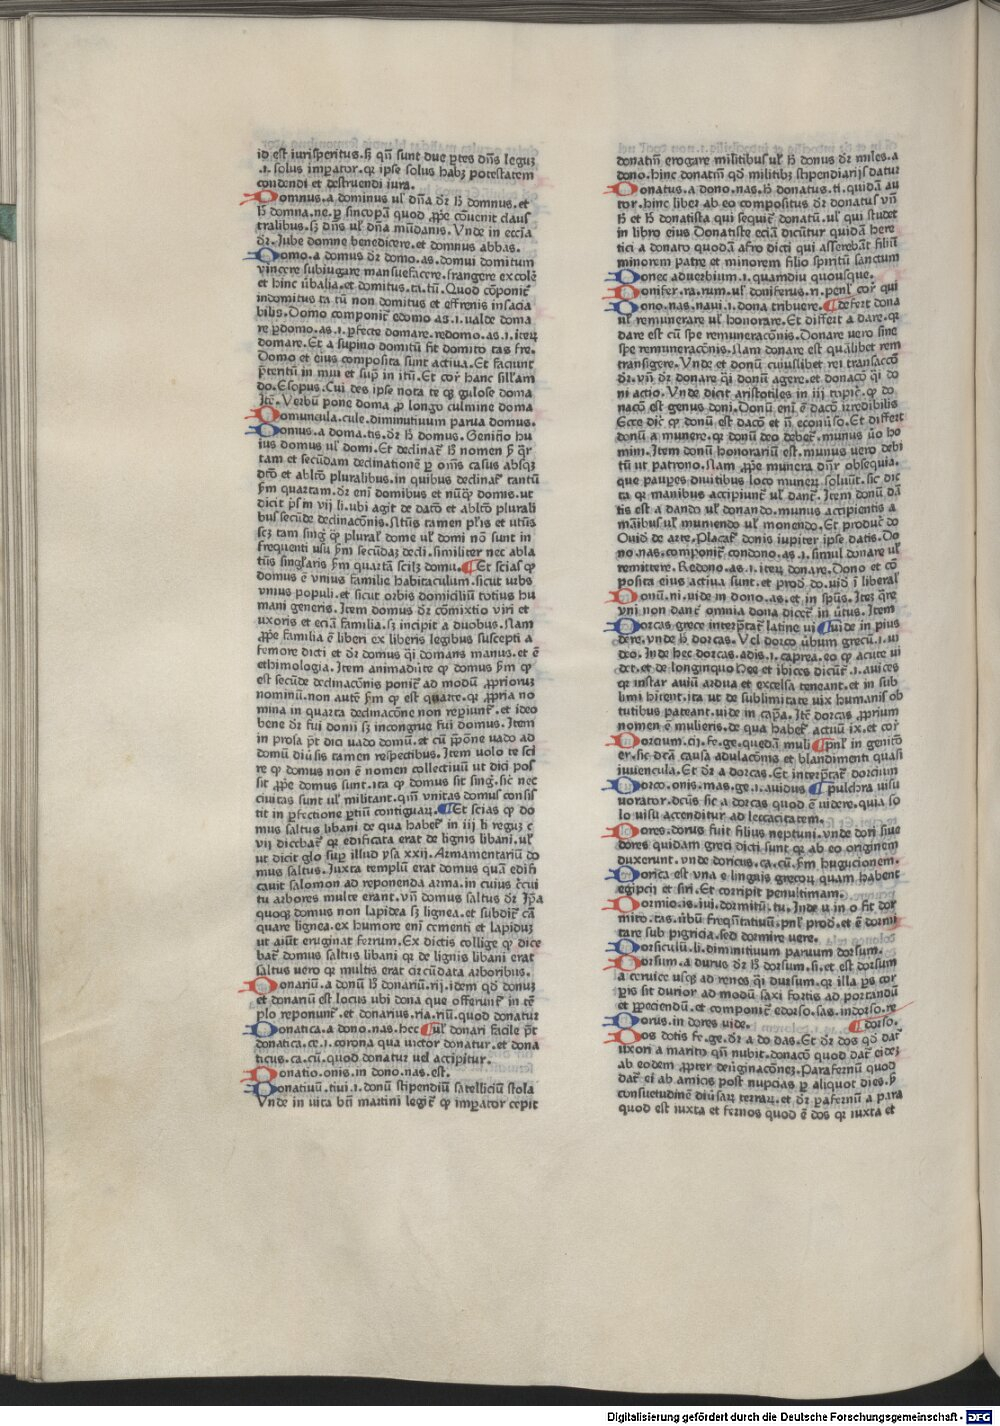 id est iurisperitus.sꝫ qñ sunt due ptes dñs leguꝫ
.i. solus impator.qꝛ ipse solus habꝫ potestatem
condendi et destruendi iura.
Domnus.a dominus ul' dña dr̃ ħ domnus.et
ħ domna.ne.p sincopã quod ꝓpe cõuenit claus
tralibus.sꝫ dñs ul' dña mũdanis. Vnde in eccĩa
dr̃. Iube domne benedicere.et domnus abbas.
Domo.a domus dr̃ domo.as.domui domitum
vincere subiugare mansuefacere.frangere excolẽ
et hinc ũbalia.et domitus.ta.tũ. Quod cõponit̃
indomitus ta.tũ non domitus et effrenis insacia
bilis. Domo componit̃ edomo as.i. valde doma
re pdomo.as.i. pfecte domare.redomo.as.i. iteꝝ
domare. Et a supino domitũ fit domito tas fre.
Domo et eius composita sunt actiua. Et faciunt
p̃teritũ in mui et sup̃ in itũ. Et cor̃ hanc sill'am
do. Esopus. Cui des ipse nota te qꝫ gulose doma
Itẽ. Verbũ pone doma ꝓ longo culmine doma
Domuncula.cule.diminutiuum parua domus.
Domus.a doma.tis.dr̃ ħ domus. Genitĩo hu
ius domus ul' domi. Et declinat̃ ħ nomen ẜm q̃r
tam et secũdam declinationẽ p om̃s casus absqꝫ
dtõ et ablt̃o pluralibus.in quibus declinat̃ tantũ
ẜm quartam.dr̃ eni domibus et nũqꝫ domis.ut
dicit p̃sm vij li.ubi agit de datõ et ablt̃o plurali
bus secũde declinacõnis. Nt̃us tamen pl'is et ut̃us
scꝫ tam sing̃ qꝫ plural' dome ul' domi nõ sunt in
frequenti usu ẜm secũdaꝫ decli.similiter nec abla
tũs singl'aris ẜm quartã scilꝫ domu. Et scias qꝫ
domus ẽ vnius familie habitaculum.sicut urbs
vnius populi.et sicut orbis domiciliũ totius hu
mani generis. Item domus dr̃ cõmixtio viri et
uxoris et eciã familia.sꝫ incipit a duobus. Nam
ꝓpe familia ẽ liberi ex liberis legibus suscepti a
femore dicti et dr̃ domus q̃i domans manus.et ẽ
ethimologia. Item animadũte qꝫ domus ẜm qꝫ
est secũde declinacõnis ponit̃ ad modũ ꝓprioruꝫ
nominũ.non autẽ ẜm qꝫ est quarte.qꝛ ꝓpria no
mina in quarta declinacõne non repiunt̃.et ideo
bene dr̃ fui domi sꝫ incongrue fui domus. Item
in prosa p̃t dici vado domũ.et cũ p̃põne vado ad
domũ diũsis tamen respectibus. Item volo te sci
re qꝫ domus non ẽ nomen collectiuũ ut dici pos
sit ꝓpe domus sunt.ita qꝫ domus sit sing̃.sic̃ nec
ciuitas sunt ul' militant.qm̃ vnitas domus consis
tit in pfectione ptiũ contiguaꝝ. Et scias qꝫ do
mus saltus libani de qua habet̃ in iij li reguꝫ c
vij dicebat̃ qꝛ edificata erat de lignis libani.ul'
ut dicit glo sup illud ysa xxij. Armamentariũ do
mus saltus. Iuxta templũ erat domus quã edifi
cauit salomon ad reponenda arma.in cuius c̃cui
tu arbores multe erant.vñ domus saltus dr̃ Ip̃a
quoqꝫ domus non lapidea sꝫ lignea.et subdit̃ cã
quare lignea.ex humore eni cementi et lapiduꝫ
ut aiũt eruginat ferrum. Ex dictis collige qꝫ dice
bat̃ domus saltus libani qꝛ de lignis libani erat
saltus vero qꝛ multis erat circũdata arboribus.
Donariũ.a donũ ħ donariũ.rij.idem qd' donuꝫ
et donariũ est locus ubi dona que offerunt̃ in tẽ
plo reponunt̃.et donarius.ria.riũ.quod donatur
Donatica.a dono.nas.hec ul' donari facile p̃t
donatica.ce.i. corona qua victor donatur.et dona
ticus.ca.cũ.quod donatur uel accipitur.
Donatio.onis.in dono.nas.est.
Donatiuũ.tiui.i. donũ stipendiũ satelliciũ stola
Vnde in vita bñ martini legit̃ qꝫ impator cepit
donatiũ erogare militibus ul' ħ donus dr̃ miles.a
dono.hinc donatiũ qd' militibꝫ stipendiarijs datur
Donatus.a dono.nas.ħ donatus.ti.quidã au
tor.hinc liber ab eo compositus dr̃ donatus vñ
ħ et ħ donatista qui sequit̃ donatũ.ul' qui studet
in libro eius Donatiste eciã dicũtur quidã here
tici a donato quodã afro dicti qui asserebãt filiũ
minorem patre et minorem filio spiritũ sanctum
Donec aduerbium.i. quamdiu quousque.
Donifer.ra.rum.ul' doniferus.ri.penl' cor̃ qui
Dono.nas.naui.i. dona tribuere. defert dona
ul' remunerare ul' honorare. Et differt a dare.qꝛ
dare est cũ spe remuneracõnis. Donare vero sine
spe remuneracõnis. Nam donare est quãlibet rem
transigere. Vnde et donũ cuiuslibet rei transaccõ
dr̃.vñ dr̃ donare q̃i donũ agere.et donacõ q̃i do
ni actio. Vnde dicit aristotiles in iij topic̃.qꝫ do
nacõ est genus doni. Donũ eni ẽ dacõ irredibilis
Ecce dic̃ qꝫ donũ est dacõ et ñ econũso. Et differt
donũ a munere.qꝛ donũ deo debet̃.munus ũo ho
mini. Item donũ honorariũ est.munus vero debi
tũ ut patrono. Nam ꝓpe munera dñr obsequia.
que paupes diuitibus loco muneꝝ soluũt.sic dic
ta qꝛ manibus accipiunt̃ ul' dant̃. Item donũ dã
tis est a dando ul' donando.munus accipientis a
mãibus ul' muniendo ul' monendo. Et produc̃ do
Ouid' de arte. Placat̃ donis iupiter ipse datis. Do
no.nas.componit̃ condono.as.i. simul donare ul'
remittere. Redono.as.i. iteꝝ donare. Dono et cõ
posita eius actiua sunt.et prod' do.uid' ĩ liberal'
Donũ.ni.vide in dono.as.et in spũs. Iteꝫ q̃re
vni non dant̃ omnia dona dicet̃ in ũtus. Item
Dorcas grece interp̃tat̃ latine ui uide in pius
dere.vnde ħ dorcas. Vel dorco ũbum grecũ.i. vi
deo. Inde hec dorcas.adis.i. caprea.eo qꝫ acute vi
det.et de longinquo Hee et ibices dicũt̃.i. auices
qꝛ instar auiũ ardua et excelsa teneant.et in sub
limi hiẽnt.ita ut de sublimitate uix humanis ob
tutibus pateant.uide in cap̃a. Itẽ dorcas ꝓprium
nomen ẽ mulieris.de qua habet̃ actuũ ix.et cor̃
Dorcium.cij.fe.ge.quedã muli penl' in genitõ
er.sic dc̃ã causa adulacõnis et blandimenti quasi
iuuencula. Et dr̃ a dorcas. Et interp̃tat̃ dorcium
Dorco.onis.mas.ge.i. auidus pulchra uisu
vorator.dc̃us sic a dorcas quod ẽ uidere.quia so
lo uisu accenditur ad leccacitatem.
Dores.dorus fuit filius neptuni.vnde dori siue
dores quidam greci dicti sunt qꝛ ab eo originem
duxerunt.vnde doricus.ca.cũ.ẜm hugucionem.
Dorica est vna e linguis grecoꝝ quam habent
egipcij et siri. Et corripit penultimam.
Dormio.is.iui.dormitũ.tu. Inde u in o fit dor
mito.tas.ũbũ freqũtatiuũ.pnl' prod'.et ẽ dormi
tare sub pigricia.sed dormire uere.
Dorsiculũ.li.diminitiuum paruum dorsum.
Dorsum.a durus dr̃ ħ dorsum.si.et est dorsum
a ceruice usqꝫ ad renes q̃i dursum.qꝛ illa ps cor
pis sit durior ad modũ saxi fortis ad portandũ
et ꝑpeciendũ.et componit̃ edorso.sas.indorso.re
Dorus.in dores uide. dorso.
Dos dotis fe.ge.dr̃ a do das. Et dr̃ dos qd' dat̃
uxori a marito qñ nubit.donacõ quod dat̃ eideꝫ
ab eodem ꝓpter deuiginacõneꝫ. Parafernũ quod
dat̃ ei ab amicis post nupcias p aliquot dies.ꝑ
consuetudinẽ diũsaꝝ terraꝝ.et dr̃ pafernũ a para
quod est iuxta et fernos quod ẽ dos qꝛ iuxta et
Digitalisierung gefördert durch die Deutsche Forschungsgemeinschaft - DFG